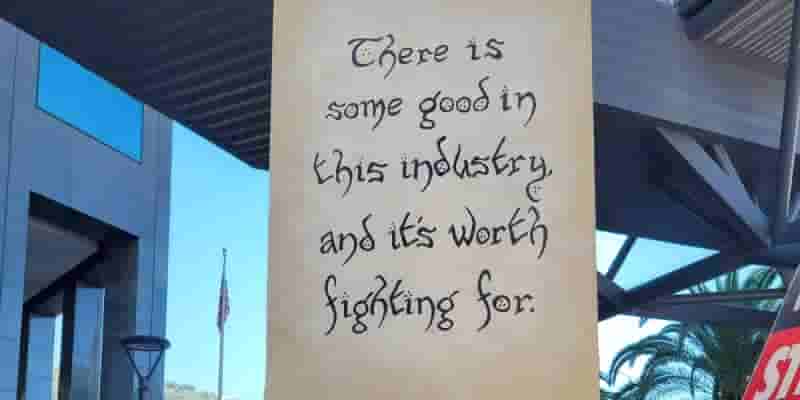 There is
some good in
this industry,
and it's worth
fighting for.